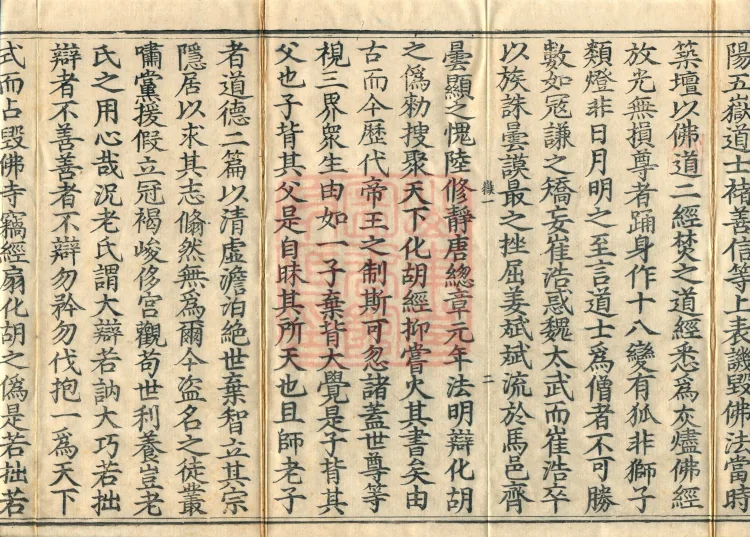 陽五嶽道士褚善信等上表譏毀佛法當時
築壇以佛道二經焚之道經悉為灰燼佛經
放光無損尊者踊身作十八變有狐非獅子
類燈非日月明之至言道士為僧者不可勝
數如冦謙之矯妄崔浩惑魏太武而崔浩卒
以族誅曇謨最之挫屈姜斌斌流於馬邑齊
曇顯之愧陸修靜唐總章元年法明辯化胡
之偽勑搜聚天下化胡經抑嘗火其書矣由
古而今歷代帝王之制斯可忽諸蓋世尊等
視三界衆生由如一子棄背大覺是子背其
父也子背其父是自昧其所天也且師老子
者道德二篇以清虛澹泊絶世棄智立其宗
隱居以求其志翛然無為爾今盗名之徒叢
嘯黨援假立冠褐峻侈宮觀苟世利養豈老
氏之用心哉況老氏謂大辯若訥大巧若拙
辯者不善善者不辯勿矜勿伐抱一為天下
式而占毀佛寺竊經扇化胡之偽是若拙若